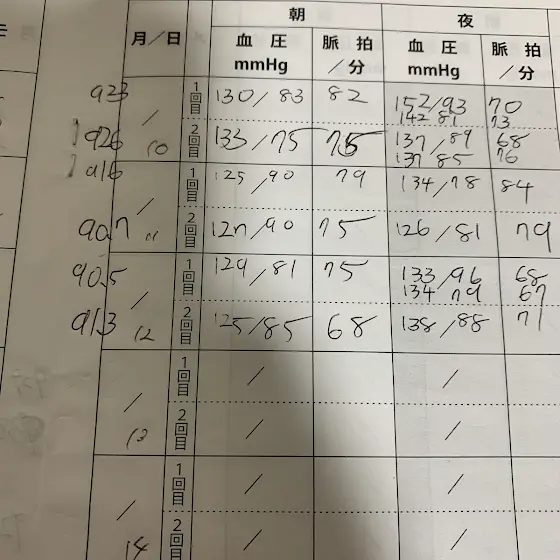 朝 夜
月/日 血圧 mmHg 脈拍 /分 血圧 mmHg 脈拍 /分
923 1回目 130/83 82 152/93 70
142 81 73
926 / 10 2回目 133/75 75 137/89 68
137 85 76
916 1回目 125/90 79 134/78 84
907 / 11 2回目 127/90 75 126/81 79
90.5 1回目 129/81 75 133/96 68
134 79 67
913 / 12 2回目 125/85 68 138/88 71
1回目 / /
/ 13 2回目 / /
1回目 / /
/ 14 2回目 / /